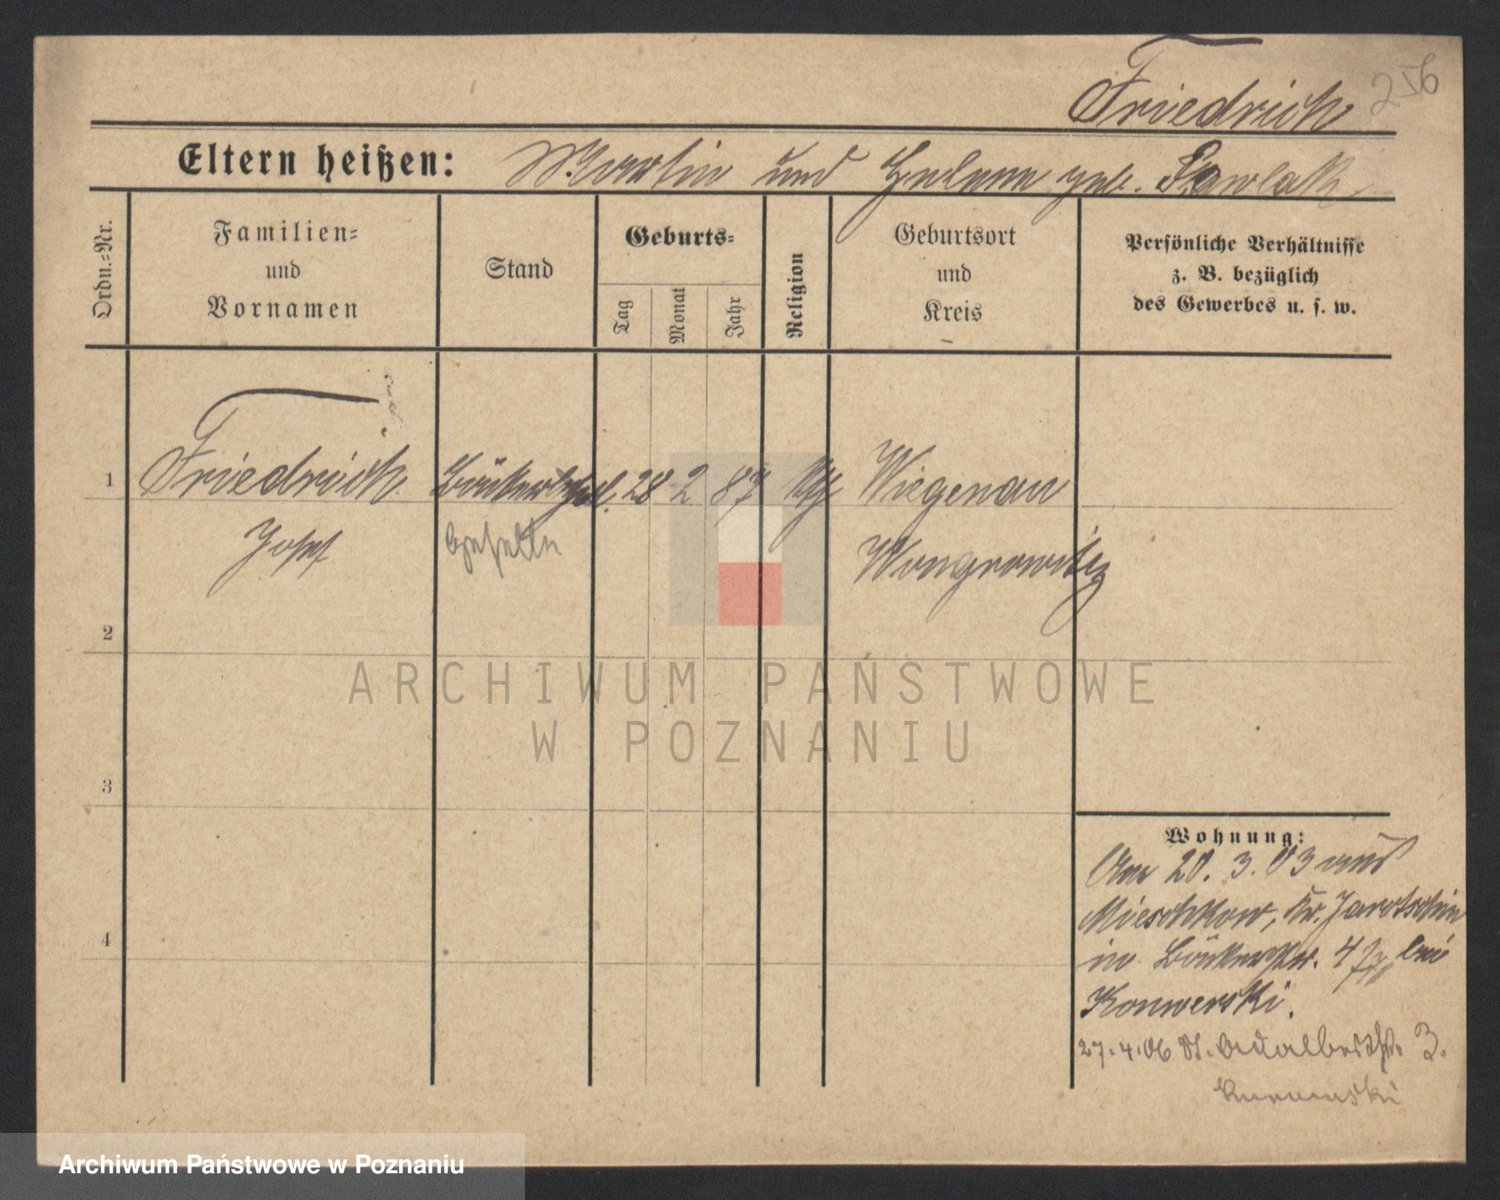 Friedrich 256
Eltern heißen: Martin und Helene geb. Pawlak
Ordn.-Nr.
Familien- und Vornamen
Stand
Geburts-
Tag
Monat
Jahr
Religion
Geburtsort und Kreis
Persönliche Verhältnisse
z. B. bezüglich
des Gewerbes u. s. w.
1 Friedrich 28 2 87 Kth Wiegenau
Josef Geselle Wongrowitz
2
3
4
Wohnung:
Am 20. 3. 03 aus
Mieschkow, Kr. Jarotschin
in Bäckerstr. 4 bei
Konwerski.
27.4.06 St. Adalbertstr. 3.
ARCHIWUM PAŃSTWOWE
W POZNANIU
Archiwum Państwowe w Poznaniu